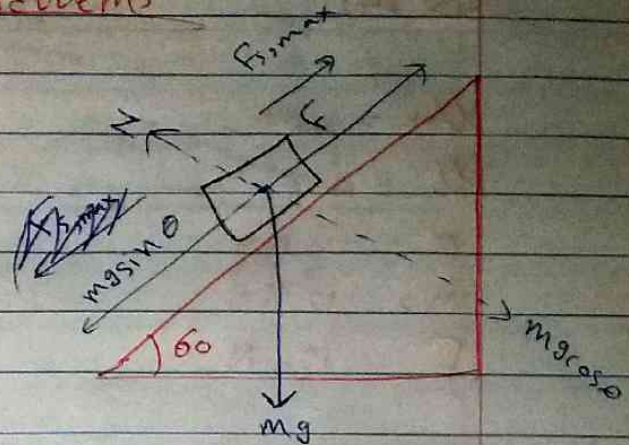 Fs,max
F
N
mg sin θ
60
mg cos θ
mg